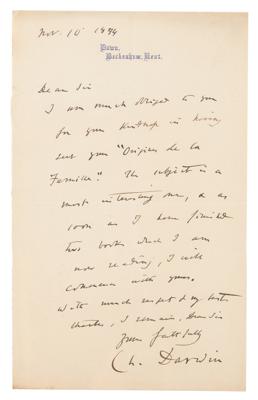 Nov. 10 1874
Down,
Beckenham, Kent.
Dear Sir
I am much obliged to you
for your kindness in having
sent your "Origines de la
Famille". The subject is a
most interesting one, & as
soon as I have finished
two books which I am
now reading, I will
commence with yours.
With much respect & my best
thanks, I remain, Dear Sir
yours faithfully
Ch. Darwin